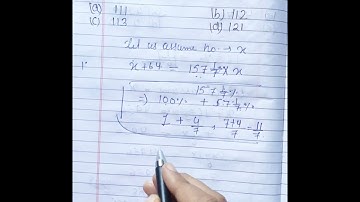 (a) 111 (b) 112
(c) 113 (d) 121
Let us assume no. → x
x + 64 = 157 1/7 % x
157 1/7 %
⇒ 100% + 57 1/7 %
1 + 4/7 , 7+4/7 = 11/7